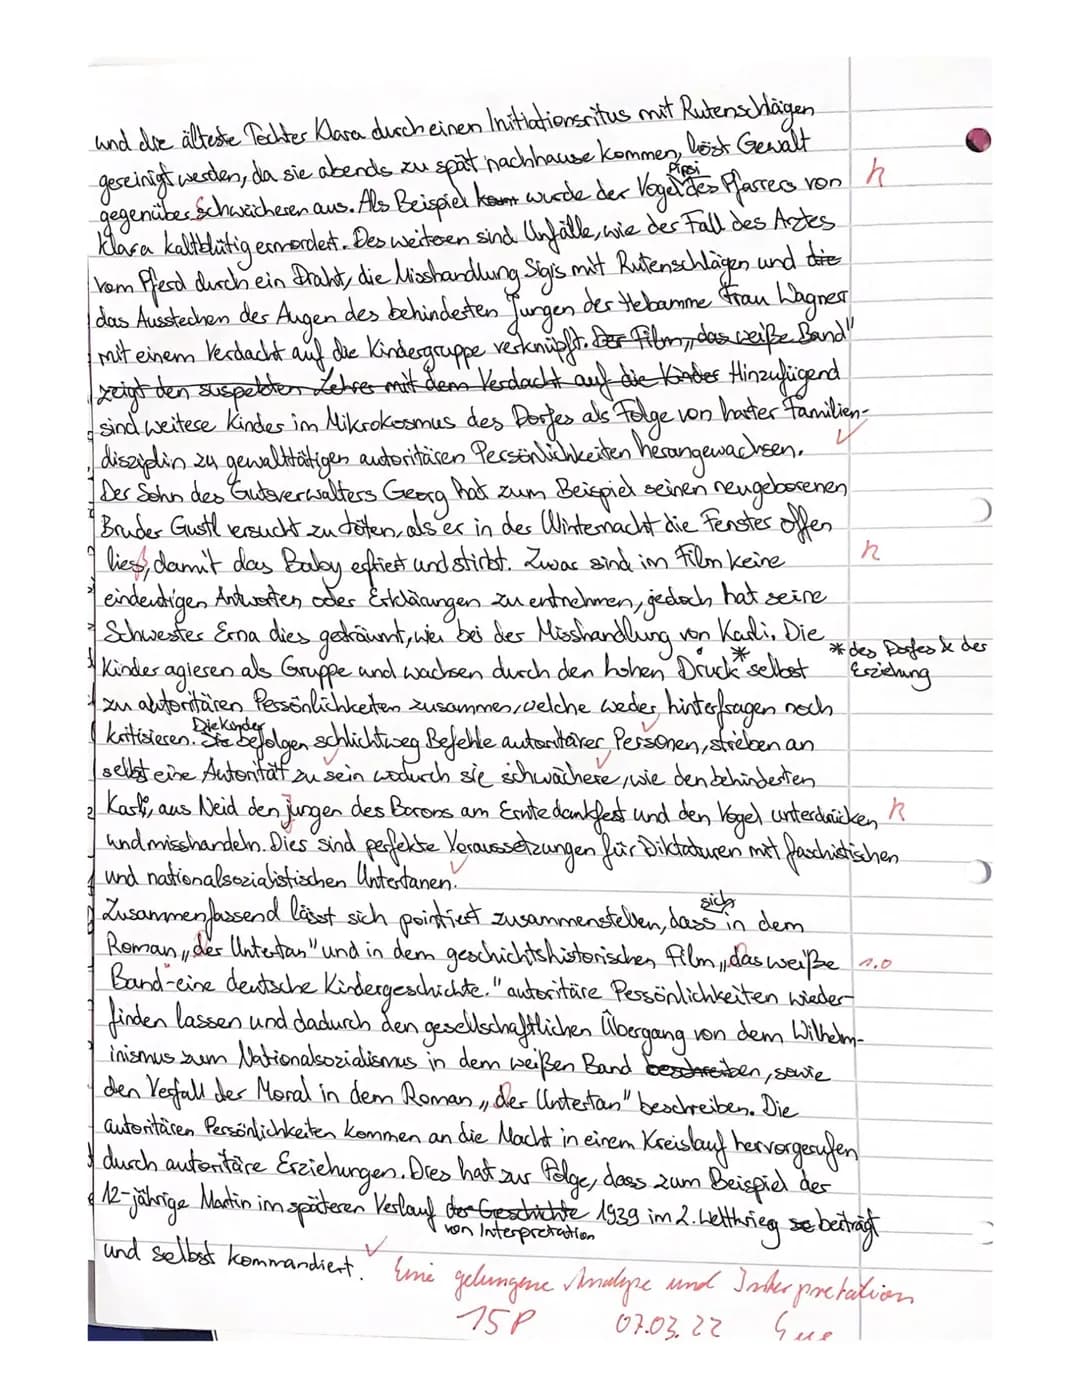 und die älteste Tochter Klara durch einen Initiationsritus mit Rutenschlägen
gereinigt werden, da sie abends zu spät nachhause kommen, löst Gewalt
gegenüber Schwächeren aus. Als Beispiel kam wurde der Vogel Pipsi des Pfarrers von
Klara kaltblütig ermordet. Des weiteren sind Unfälle, wie der Fall des Arztes
vom Pferd durch ein Draht, die Misshandlung Sigis mit Rutenschlägen und die
das Ausstechen der Augen des behinderten Jungen der Hebamme Frau Wagner
mit einem Verdacht auf die Kindergruppe verknüpft. Der Film „das weiße Band"
zeigt den suspekten Lehrer mit dem Verdacht auf die Kinder Hinzufügend
sind weitere Kinder im Mikrokosmus des Dorfes als Folge von harter Familien-
disziplin zu gewalttätigen autoritären Persönlichkeiten herangewachsen.
Der Sohn des Gutsverwalters Georg hat zum Beispiel seinen neugeborenen
Bruder Gustl versucht zu töten, als er in der Winternacht die Fenster offen
ließ, damit das Baby erfriert und stirbt. Zwar sind im Film keine
eindeutigen Antworten oder Erklärungen zu entnehmen, jedoch hat seine
Schwester Erna dies geträumt, wie bei der Misshandlung von Karli. Die
Kinder agieren als Gruppe und wachsen durch den hohen Druck * selbst
* des Dorfes & der
Erziehung
zu autoritären Persönlichkeiten zusammen, welche weder hinterfragen noch
kritisieren. Sie Die Kinder befolgen schlichtweg Befehle autoritärer Personen, streben an
selbst eine Autorität zu sein wodurch sie schwächere, wie den behinderten
Karli, aus Neid den jungen des Barons am Erntedankfest und den Vogel unterdrücken
und misshandeln. Dies sind perfekte Voraussetzungen für Diktaturen mit faschistischen
und nationalsozialistischen Untertanen.
Zusammenfassend lässt sich pointiert zusammenstellen, dass sich in dem
Roman „der Untertan" und in dem geschichtshistorischen Film „das weiße
Band-eine deutsche Kindergeschichte." autoritäre Persönlichkeiten wieder-
finden lassen und dadurch den gesellschaftlichen Übergang von dem Wilhelm-
inismus zum Nationalsozialismus in dem weißen Band beschreiben, sowie
den Verfall der Moral in dem Roman „der Untertan" beschreiben. Die
autoritären Persönlichkeiten kommen an die Macht in einem Kreislauf hervorgerufen
durch autoritäre Erziehungen. Dies hat zur Folge, dass zum Beispiel der
12-jährige Martin im späteren Verlauf der Geschichte 1939 im 2. Weltkrieg se beiträgt
von Interpretation
und selbst kommandiert.
Eine gelungene Analyse und Interpretation
15P 07.03.22